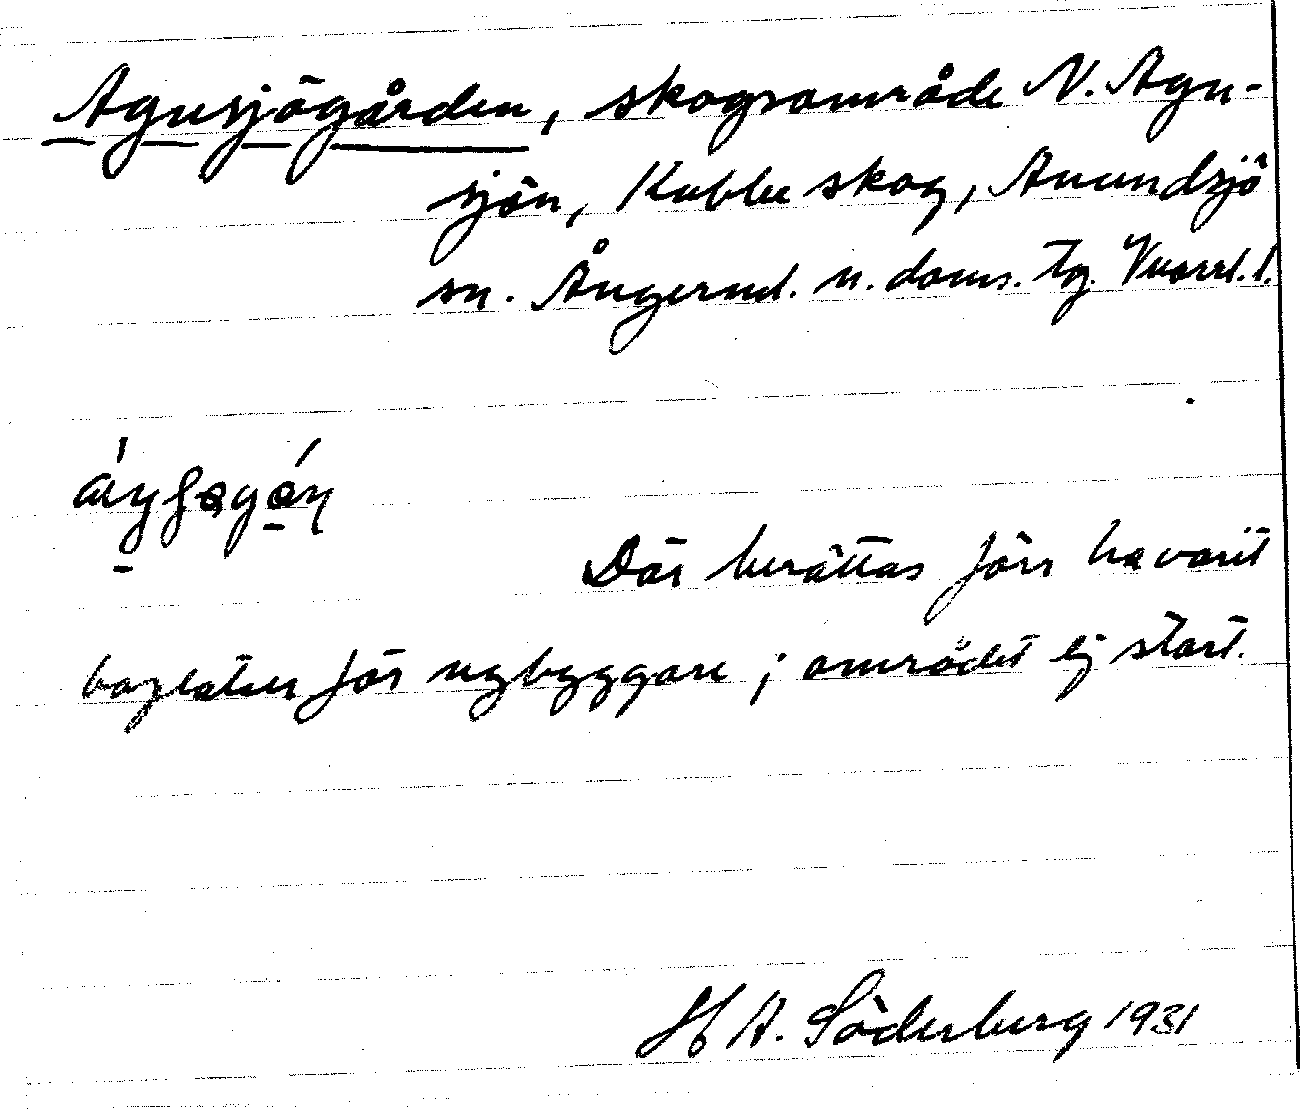 Agnsjögården, skogsområde N. Agn-
sjön, Kubbe skog, Anundsjö
sn. Ångermd. n. doms. Tg.
Där berättas förr ha varit
boplatser för nybyggare; området ej stort.
H A. Söderberg 1931